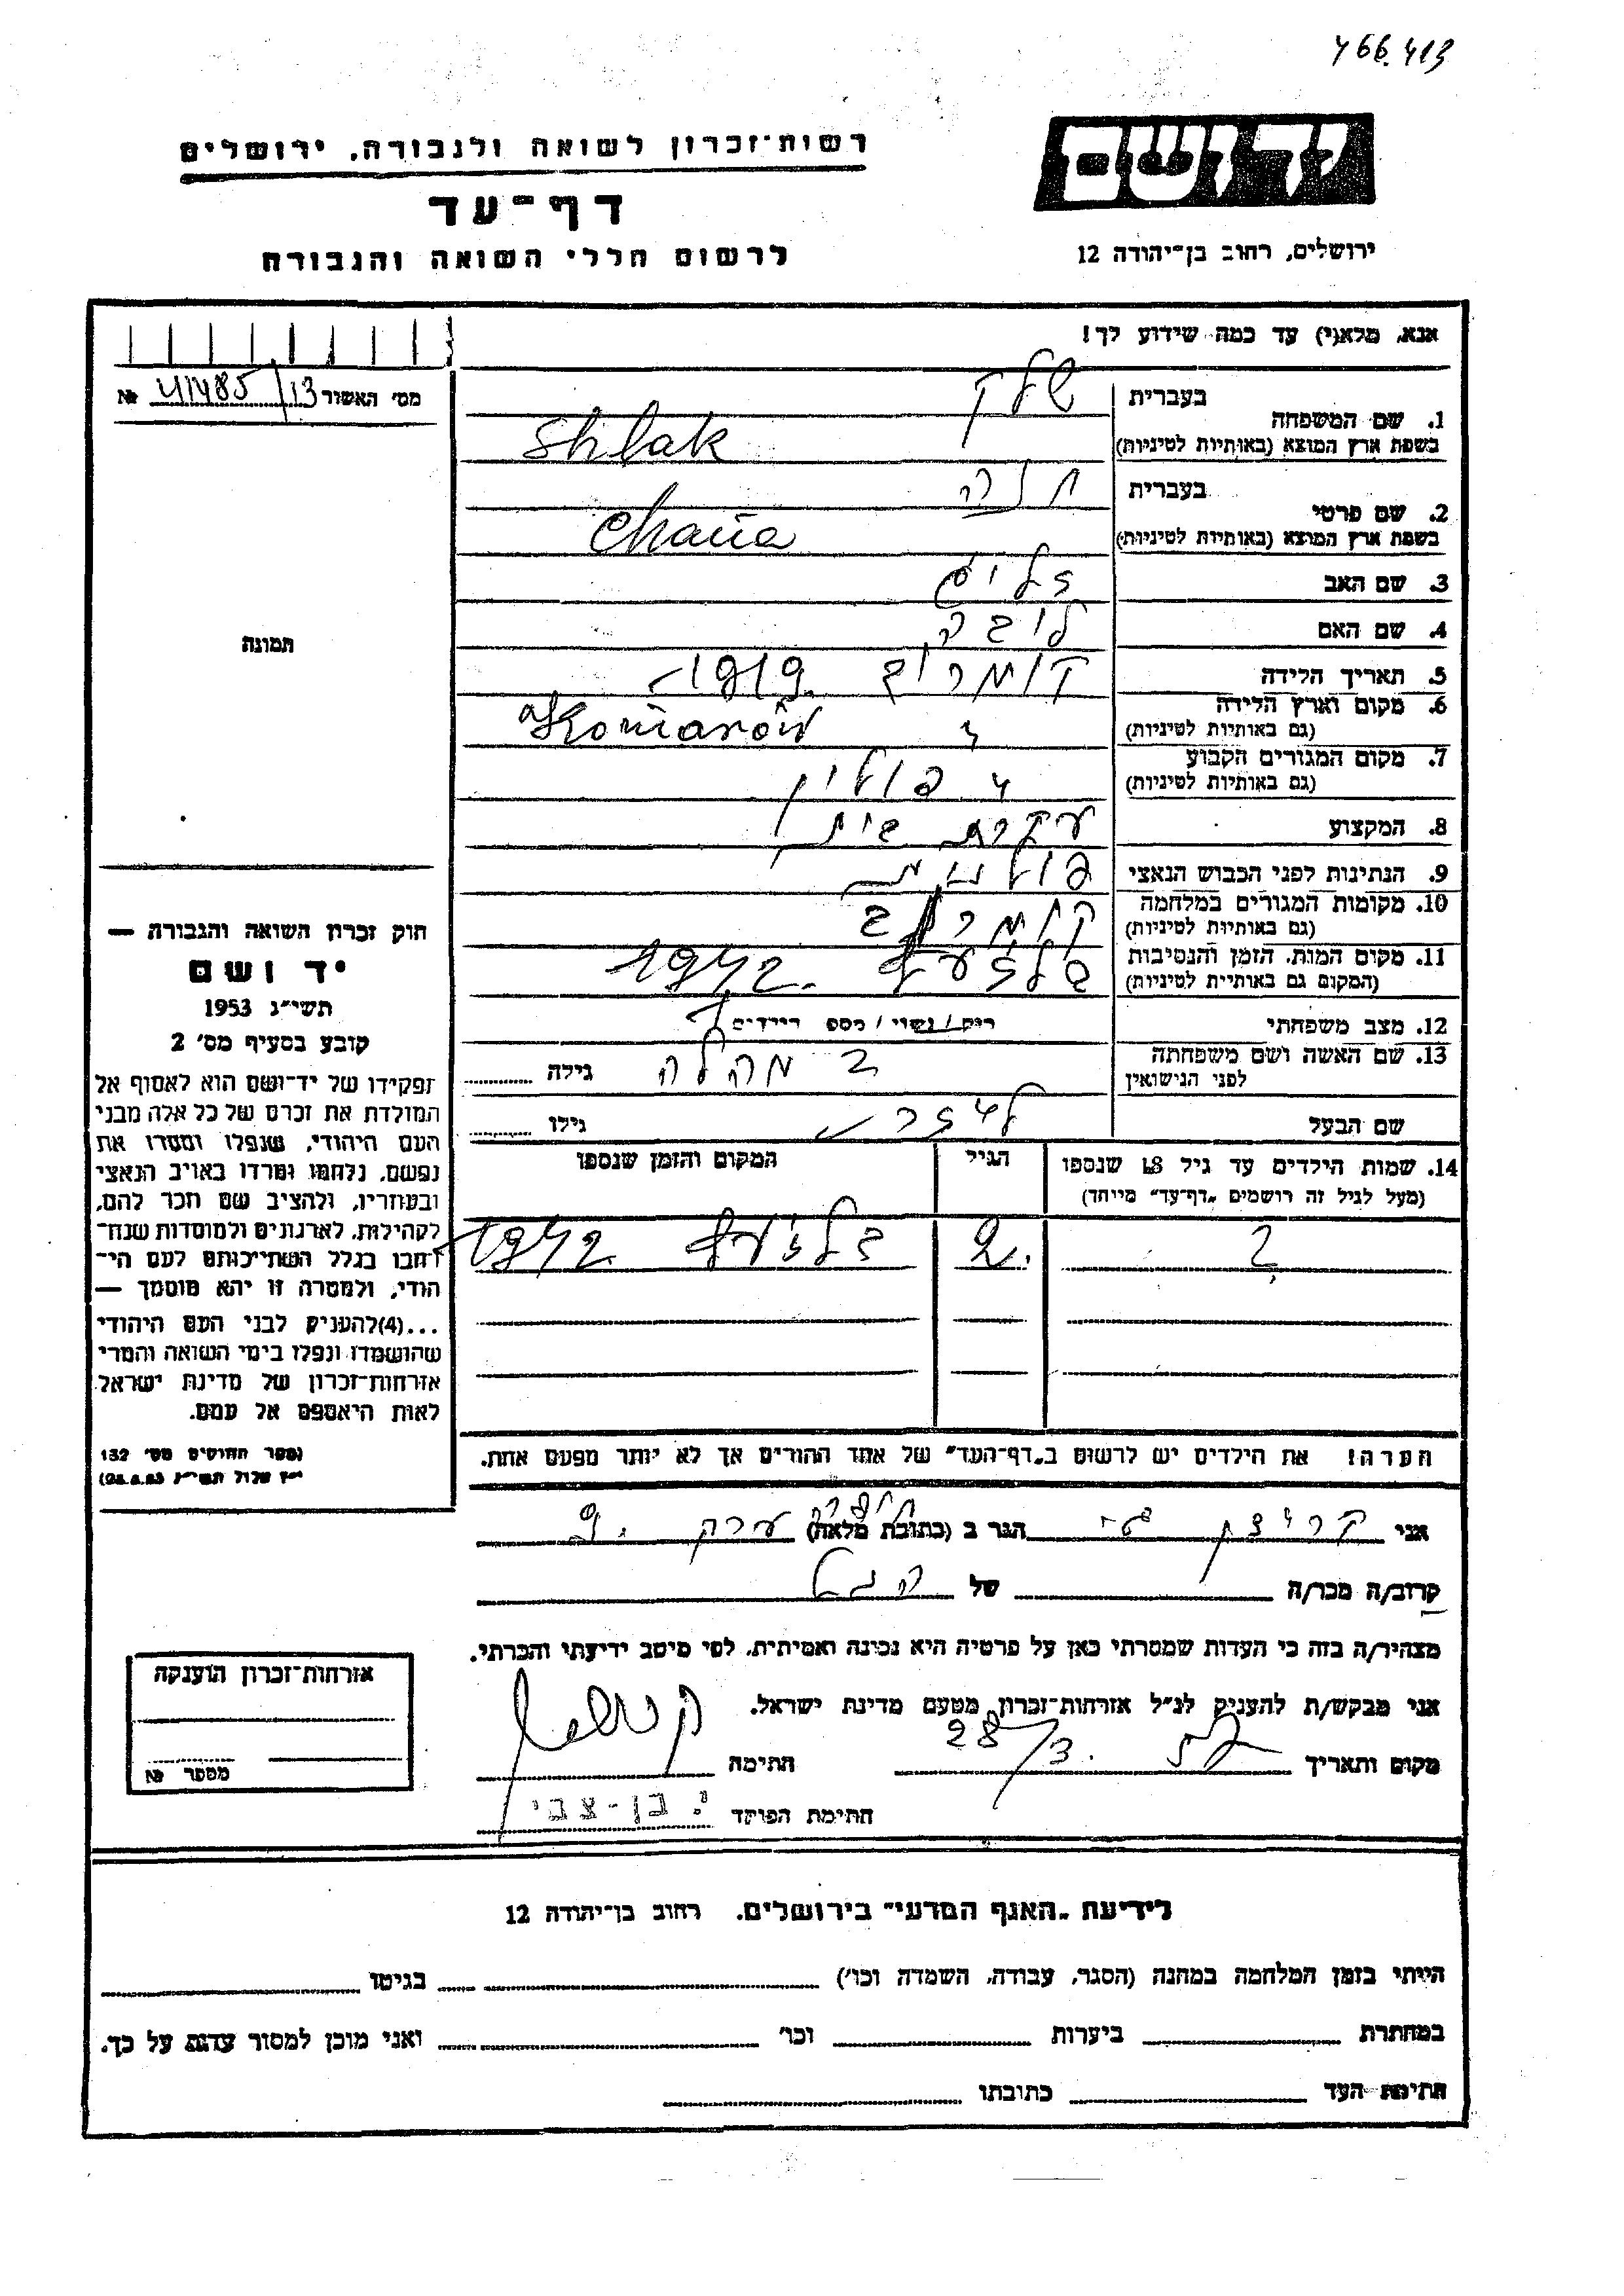 466.413
יד ושם
רשות־זכרון לשואה ולגבורה, ירושלים
דף־עד
לרשום חללי השואה והגבורה
ירושלים, רחוב בן־יהודה 12
אנא, מלא(י) עד כמה שידוע לך!
מס׳ האשור 41485/13 №
תמונה
1. שם המשפחה
בעברית שלק
בשפת ארץ המוצא (באותיות לטיניות) Shlak
2. שם פרטי
בעברית חנה
בשפת ארץ המוצא (באותיות לטיניות) Chana
3. שם האב
4. שם האם
5. תאריך הלידה 1919.
6. מקום וארץ הלידה
(גם באותיות לטיניות)
7. מקום המגורים הקבוע
(גם באותיות לטיניות) פולין
8. המקצוע עקרת בית
9. הנתינות לפני הכבוש הנאצי פולנית
10. מקומות המגורים במלחמה
(גם באותיות לטיניות)
11. מקום המות, הזמן והנסיבות
(המקום גם באותיות לטיניות) בלזעץ 1942.
12. מצב משפחתי רוק/נשוי/מספר הילדים
13. שם האשה ושם משפחתה
לפני הנישואין גילה
שם הבעל גילו
14. שמות הילדים עד גיל 18 שנספו
(מעל לגיל זה רושמים „דף־עד״ מיוחד)
הגיל
המקום והזמן שנספו
? 2. בלזעץ 1942
חוק זכרון השואה והגבורה —
יד ושם
תשי״ג 1953
קובע בסעיף מס׳ 2
תפקידו של יד־ושם הוא לאסוף אל
המולדת את זכרם של כל אלה מבני
העם היהודי, שנפלו ומסרו את
נפשם, נלחמו ומרדו באויב הנאצי
ובעוזריו, ולהציב שם וזכר להם,
לקהילות, לארגונים ולמוסדות שנח־
רבו בגלל השתייכותם לעם הי־
הודי, ולמטרה זו יהא מוסמך —
...(4)להעניק לבני העם היהודי
שהושמדו ונפלו בימי השואה והמרי
אזרחות־זכרון של מדינת ישראל
לאות היאספם אל עמם.
(ספר החוקים מס׳ 132
י״ז אלול תשי״ג 28.8.53)
הערה! את הילדים יש לרשום ב„דף־העד״ של אחד ההורים אך לא יותר מפעם אחת.
אני הגר ב (כתובת מלאה)
קרוב/ה מכר/ה של
מצהיר/ה בזה כי העדות שמסרתי כאן על פרטיה היא נכונה ואמיתית, לפי מיטב ידיעתי והכרתי.
אני מבקש/ת להעניק לנ״ל אזרחות־זכרון מטעם מדינת ישראל.
מקום ותאריך 28/3. חתימה
חתימת הפוקד י. בן-צבי
אזרחות־זכרון הוענקה
מספר №
לידיעת „האגף המדעי״ בירושלים, רחוב בן־יהודה 12
הייתי בזמן המלחמה במחנה (הסגר, עבודה, השמדה וכו׳) בגיטו
במחתרת ביערות וכו׳ ואני מוכן למסור עדות על כך.
חתימת העד כתובתו